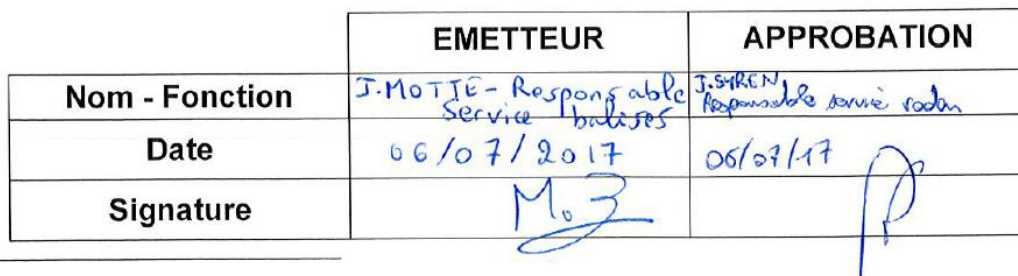 EMETTEUR APPROBATION
Nom - Fonction J.MOTTE - Responsable J.SYREN
Service balises Responsable service radon
Date 06/07/2017 06/07/17
Signature